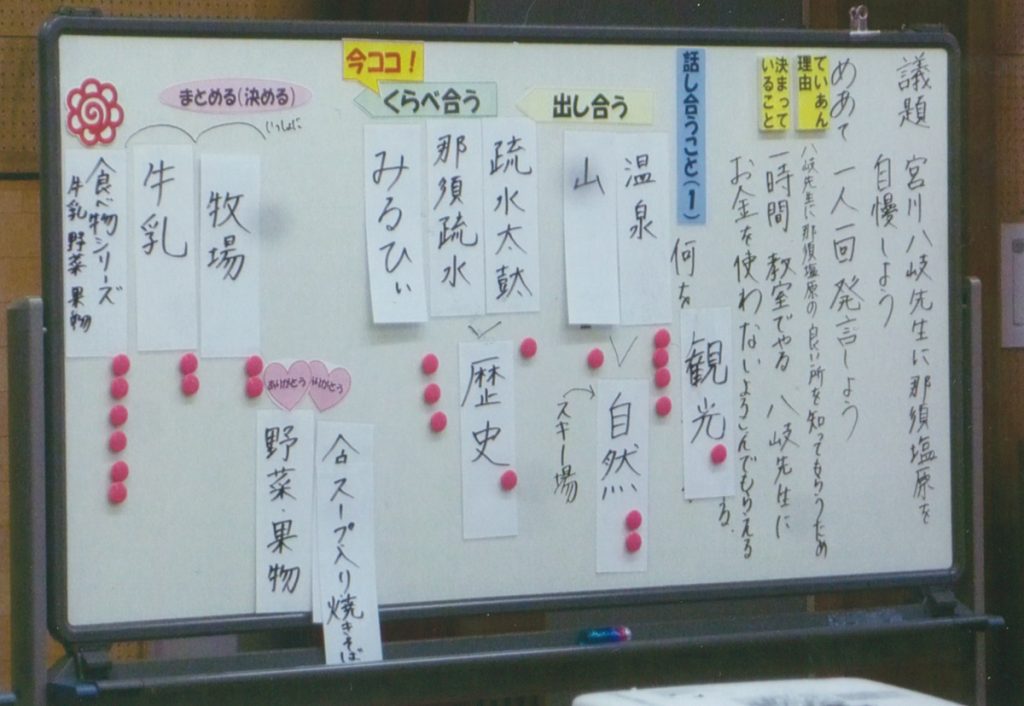 議題 宮川八岐先生に那須塩原を
自慢しよう
めあて 一人一回発言しよう
ていあん理由
八岐先生に那須塩原の良い所を知ってもらうため
決まっていること
一時間 教室でやる 八岐先生に
お金を使わないよろこんでもらえる
話し合うこと(1)
何を
る。
観光
出し合う
温泉
山
自然
スキー場
今ココ!
くらべ合う
疏水太鼓
那須疏水
みるひぃ
歴史
まとめる(決める)
いっしょに
牧場
牛乳
食べ物シリーズ
牛乳 野菜 果物
ありがとう
ありがとう
スープ入り焼きそば
野菜・果物